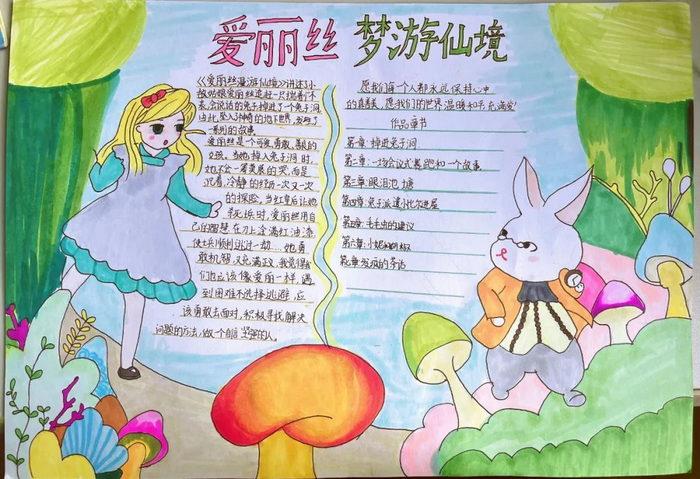 爱丽丝 梦游仙境
《爱丽丝漫游仙境》讲述了小
姑娘爱丽丝追赶一只揣着怀
表、会说话的兔子掉进了一个兔子洞
由此坠入了神奇的地下世界,发现了
一系列的故事
爱丽丝是个可爱、勇敢、善良的
女孩。当她掉入兔子洞时,
她不会一着莫展的哭,而是
沉着,冷静的经历一次又一次
的探险,当红皇后让她
自己的智慧
她勇
敢机智又充满
们也应该像爱丽丝一样,遇
到困难不选择逃避,应
该勇敢去面对,积极寻找解决
问题的方法,做一个自信坚强的人。
愿我们每一个人都永远保持心中
的真善美,愿我们的世界温暖和平充满爱!
作品章节
第一章:掉进兔子洞
第二章:一场会议式赛跑和一个故事
第三章:眼泪池塘
第四章:兔子派遣小比尔进屋
第五章:毛毛虫的建议
第六章:小
第七章:发疯的茶话